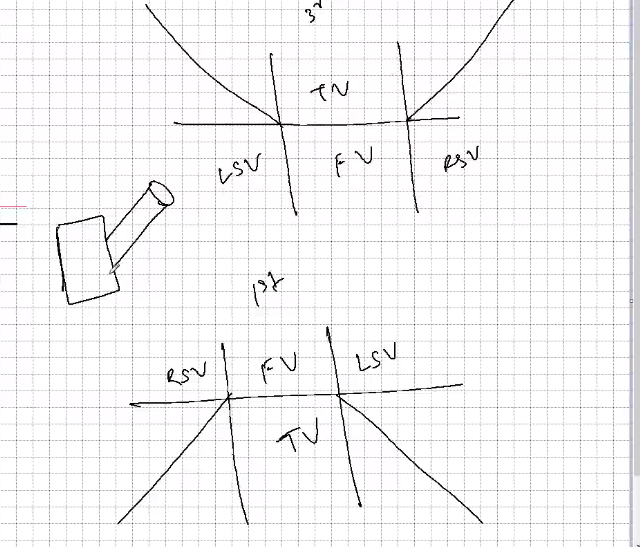 3r
TV
LSV FV RSV
1st
RSV FV LSV
TV